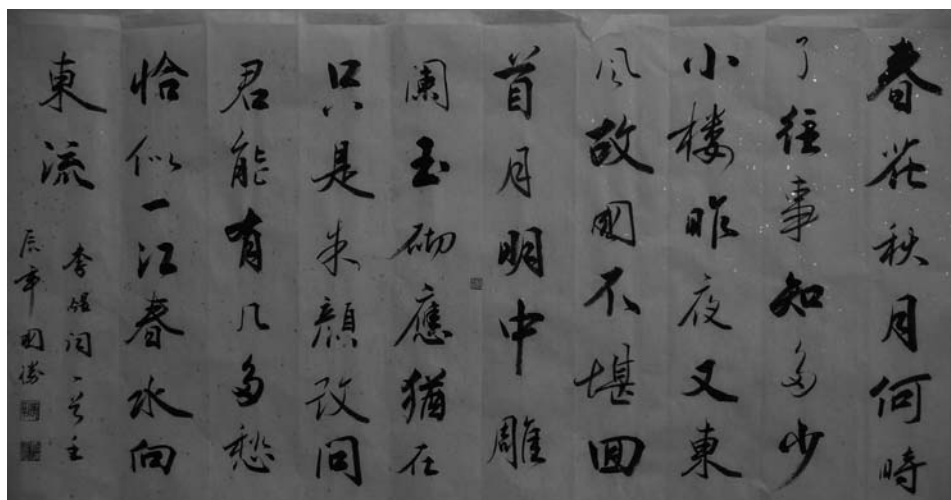 春花秋月何時
了往事知多少
小楼昨夜又東
风故國不堪回
首月明中雕
阑玉砌應猶在
只是朱顔改问
君能有几多愁
恰似一江春水向
東流
李煜词一首壬
辰年國勝